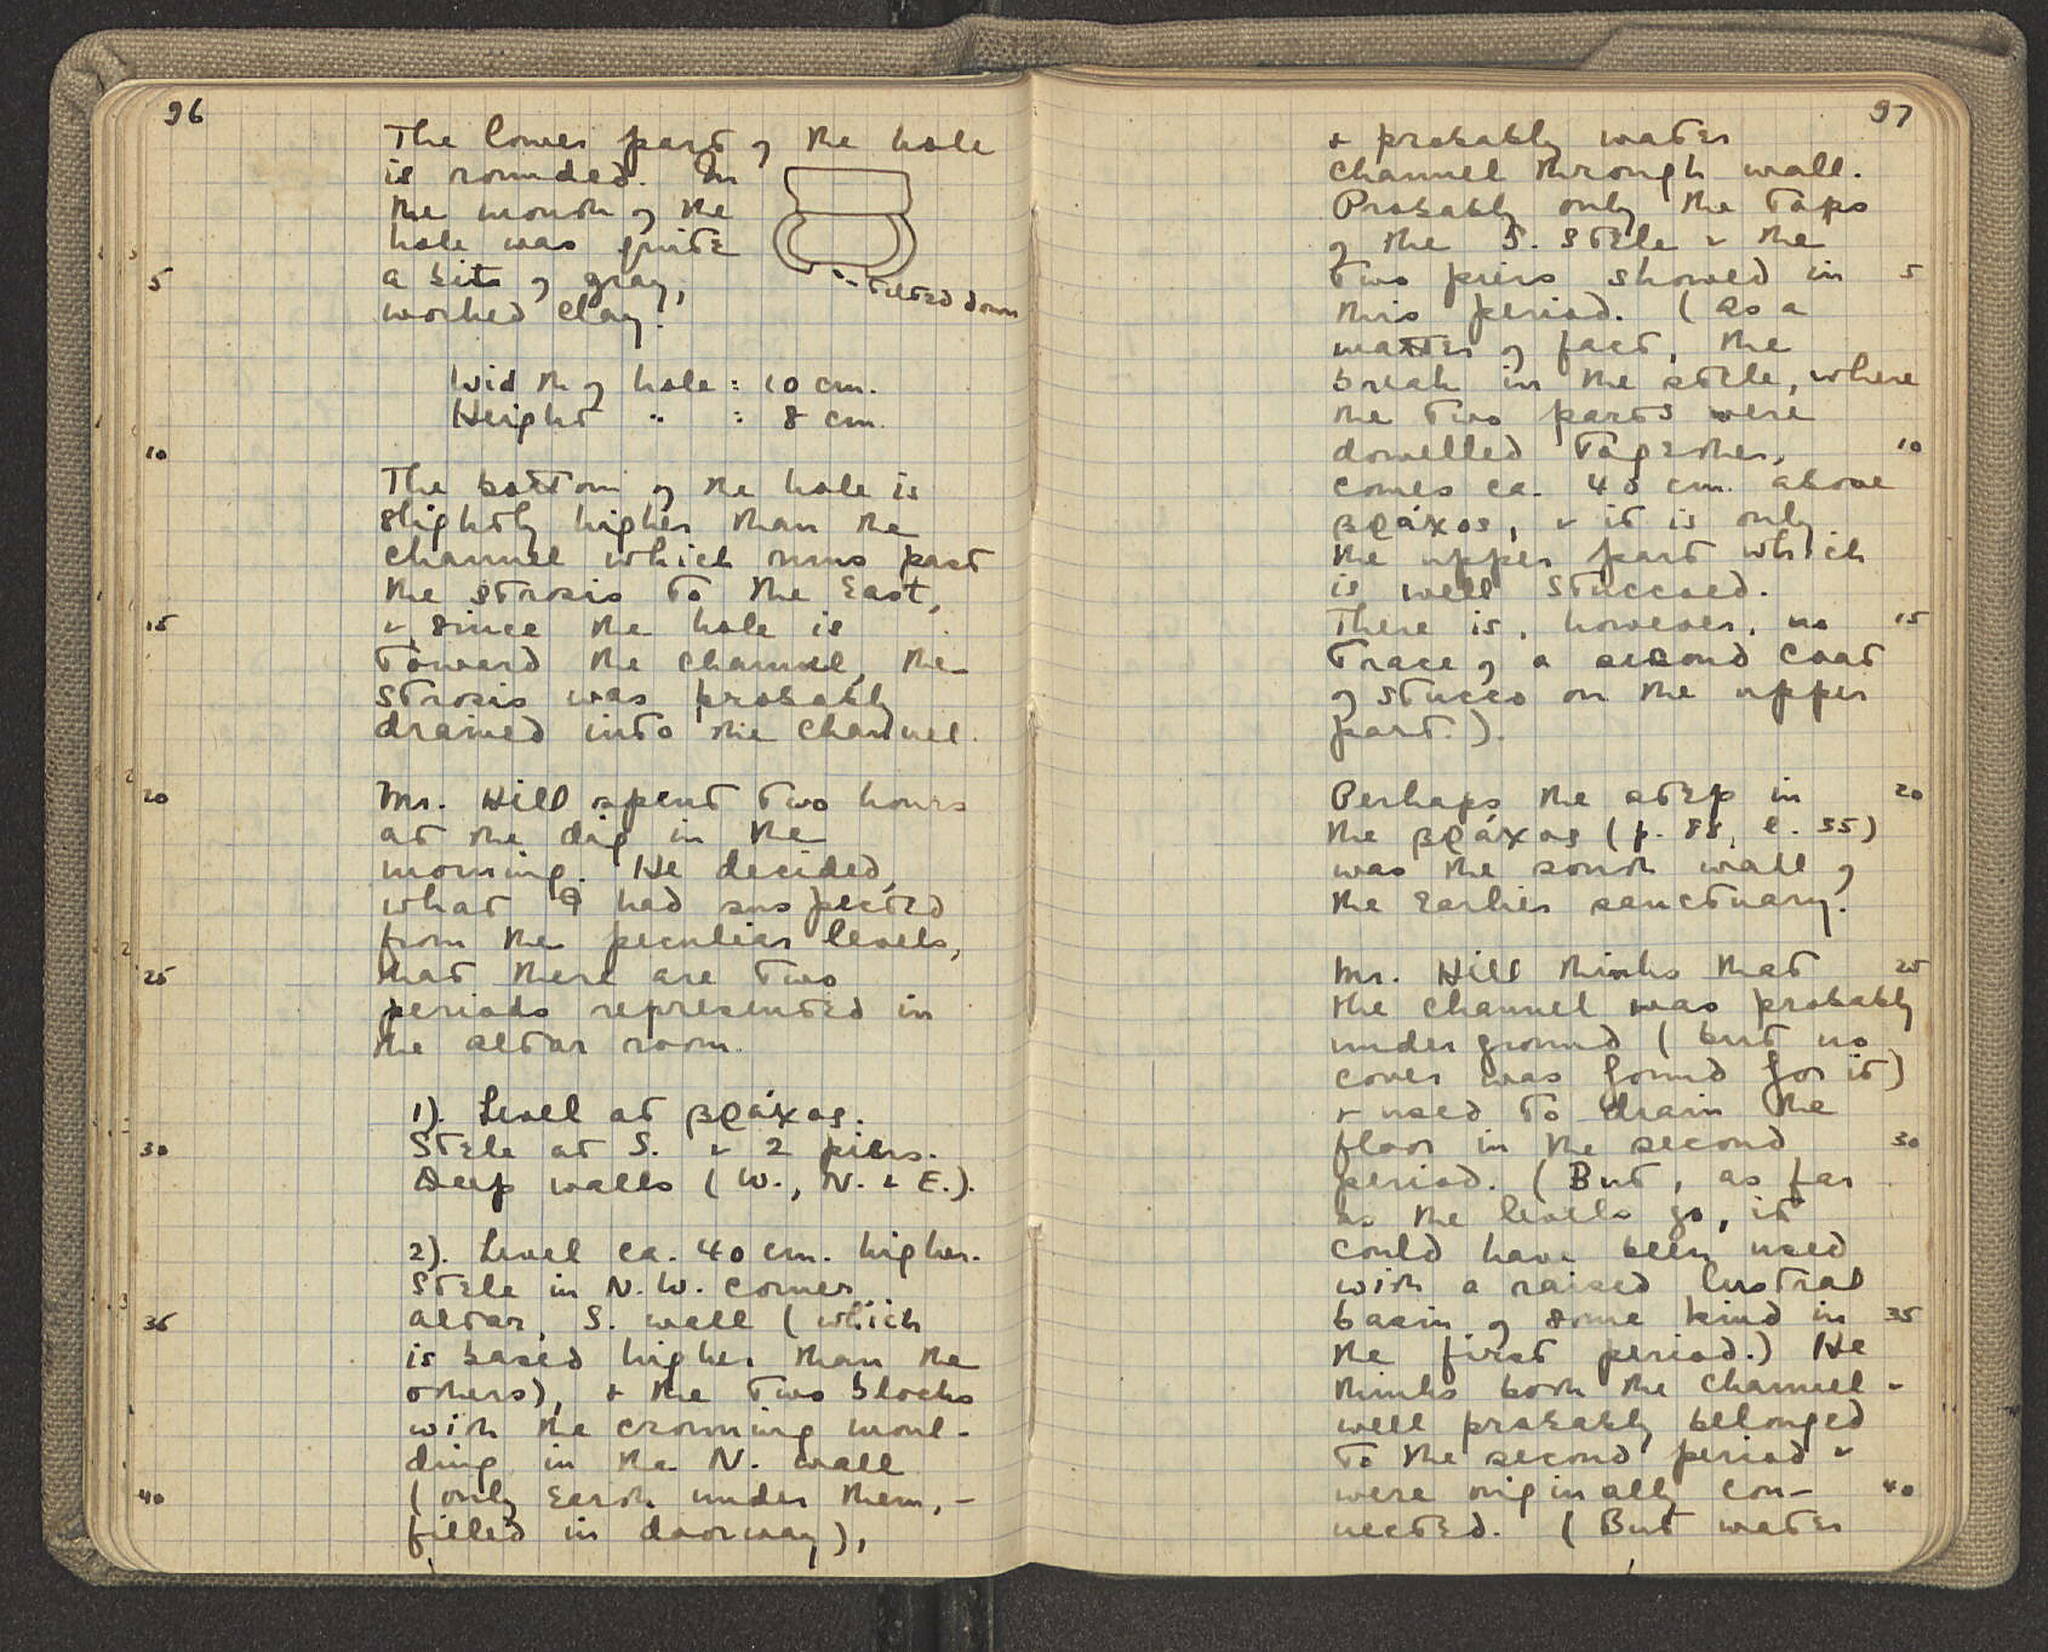 96
The lower part of the hole
is rounded. In
the mouth of the
hole was quite
5
a bit of gray,
tilted down
worked clay.
Width of hole : 10 cm.
Height " : 8 cm.
10
The bottom of the hole is
slightly higher than the
channel which runs past
the strosis to the East,
15
& since the hole is
toward the channel, the
strosis was probably
drained into the channel.
20
Mr. Hill spent two hours
at the dig in the
morning. He decided,
what I had suspected
from the peculiar levels,
25
that there are two
periods represented in
the altar room.
1). Level at βράχος.
30
Stele at S. & 2 piers.
Deep walls (W., N. & E.).
2). Level ca. 40 cm. higher.
Stele in N.W. corner,
35
altar, S. wall (which
is based higher than the
others), & the two blocks
with the crowning moul-
ding in the N. wall
40
(only earth under them, -
filled in doorway),
97
& probably water
channel through wall.
Probably only the tops
of the S. stele & the
two piers showed in
5
this period. (As a
matter of fact, the
break in the stele, where
the two parts were
dowelled together,
10
comes ca. 40 cm. above
βράχος, & it is only
the upper part which
is well stuccoed.
There is, however, no
15
trace of a second coat
of stucco on the upper
part.).
Perhaps the step in
20
the βράχος (p. 88, l. 35)
was the south wall of
the earlier sanctuary.
Mr. Hill thinks that
25
the channel was probably
underground (but no
cover was found for it)
& used to drain the
floor in the second
30
period. (But, as far
as the levels go, it
could have been used
with a raised lustral
basin of some kind in
35
the first period.) He
thinks both the channel &
well probably belonged
to the second period &
were originally con-
40
nected. (But water